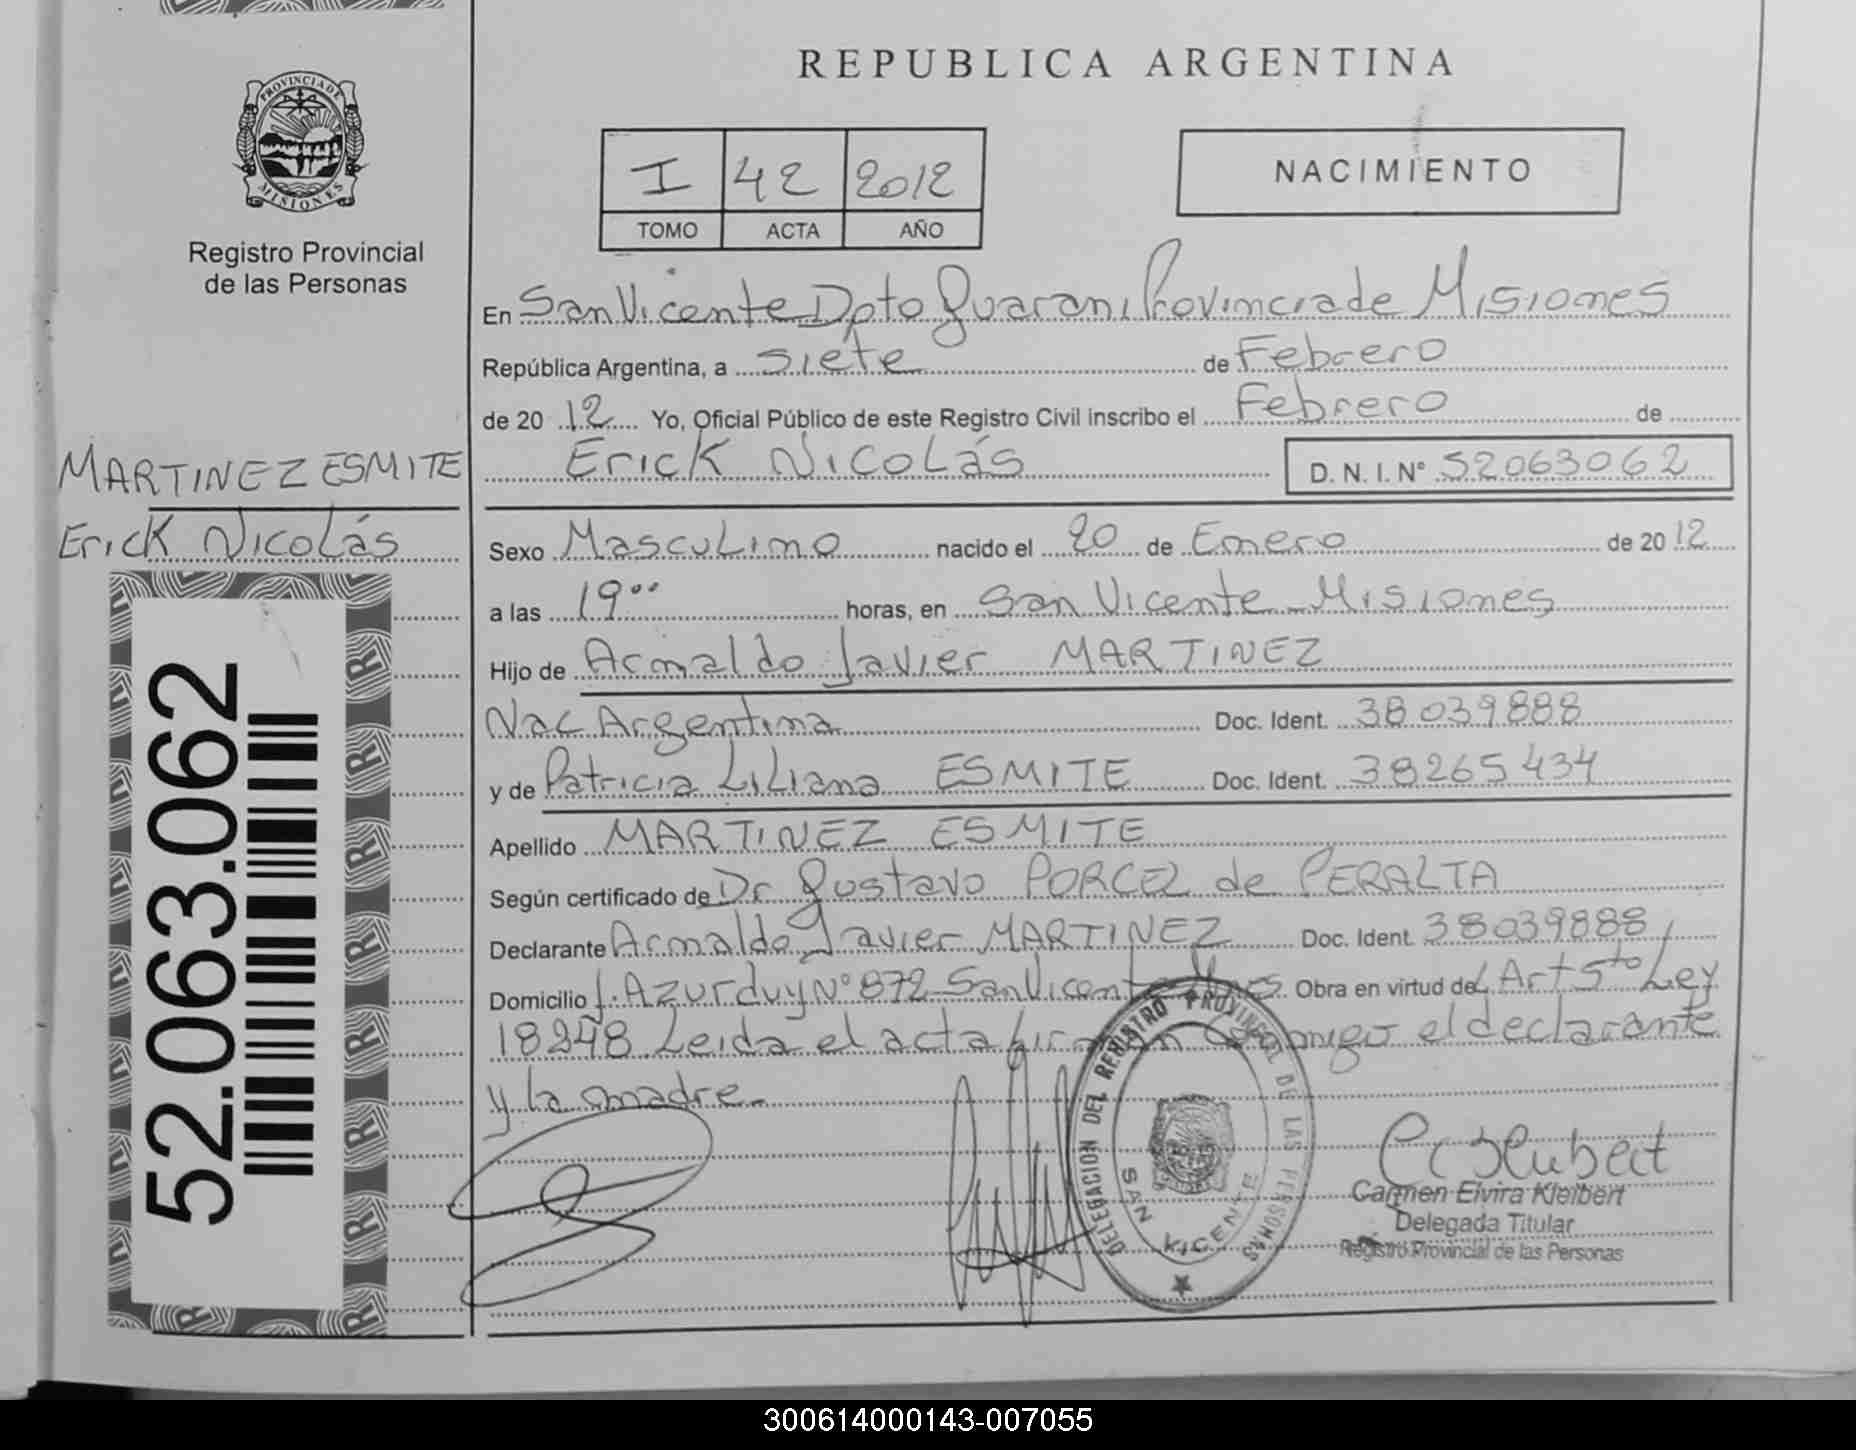 PROVINCIA DE
MISIONES
Registro Provincial
de las Personas
MARTINEZ ESMITE
Erick Nicolás
52.063.062
REPUBLICA ARGENTINA
I 42 2012
TOMO ACTA AÑO
NACIMIENTO
En San Vicente Dpto Guarani Provincia de Misiones
República Argentina, a siete de Febrero
de 20 12 Yo, Oficial Público de este Registro Civil inscribo el Febrero de
Erick Nicolás D. N. I. N° 52063062
Sexo Masculino nacido el 20 de Enero de 20 12
a las 19°° horas, en San Vicente - Misiones
Hijo de Arnaldo Javier MARTINEZ
Nac Argentina Doc. Ident. 38 039888
y de Patricia Liliana ESMITE Doc. Ident. 38265434
Apellido MARTINEZ ESMITE
Según certificado de Dr Gustavo PORCEL de PERALTA
Declarante Arnaldo Javier MARTINEZ Doc. Ident. 38039888
Domicilio J. Azurduy N° 872 San Vicente Obra en virtud del Art 5to Ley
18248 Leida el acta firman conmigo el declarante
y la madre.-
DELEGACION DEL REGISTRO PROVINCIAL DE LAS PERSONAS
SAN VICENTE
Carmen Elvira Kleibert
Delegada Titular
Registro Provincial de las Personas
300614000143-007055